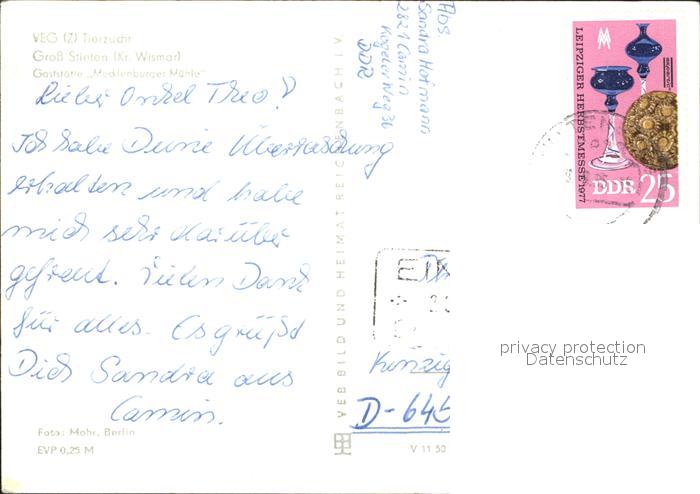 VEG (Z) Tierzucht
Groß Stieten (Kr. Wismar)
Gaststätte „Mecklenburger Mühle"
Lieber Onkel Theo!
Ich habe Deine Überraschung
erhalten und habe
mich sehr darüber
gefreut. Vielen Dank
für alles. Es grüßt
Dich Sandra aus
Cammin.
Foto: Mohr, Berlin
EVP 0,25 M
VEB BILD UND HEIMAT REICHENBACH I V
V 11 50
Abs
Sandra Hofmann
2821 Camin
Kogeler Weg 36
DDR
LEIPZIGER HERBSTMESSE 1977
DDR 25
EIN
Kinzig
D-645
privacy protection
Datenschutz